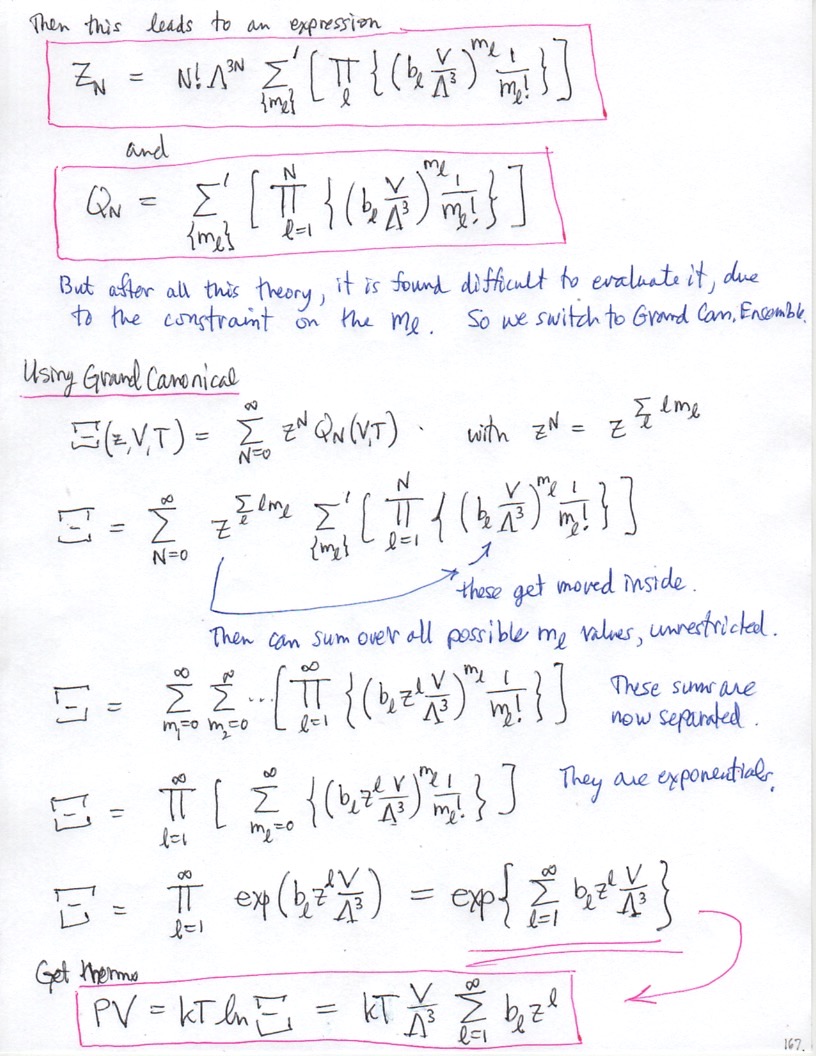 Then this leads to an expression
Z_N = N! Λ^{3N} Σ'_{{m_ℓ}} [ Π_ℓ { (b_ℓ V/Λ³)^{m_ℓ} 1/m_ℓ! } ]
and
Q_N = Σ'_{{m_ℓ}} [ Π_{ℓ=1}^{N} { (b_ℓ V/Λ³)^{m_ℓ} 1/m_ℓ! } ]
But after all this theory, it is found difficult to evaluate it, due
to the constraint on the m_ℓ. So we switch to Grand Can. Ensemble.
Using Grand Canonical
Ξ(z,V,T) = Σ_{N=0}^{∞} z^N Q_N(V,T) . with z^N = z^{Σ_ℓ ℓm_ℓ}
Ξ = Σ_{N=0}^{∞} z^{Σ_ℓ ℓm_ℓ} Σ'_{{m_ℓ}} [ Π_{ℓ=1}^{N} { (b_ℓ V/Λ³)^{m_ℓ} 1/m_ℓ! } ]
these get moved inside.
Then can sum over all possible m_ℓ values, unrestricted.
Ξ = Σ_{m_1=0}^{∞} Σ_{m_2=0}^{∞} ... [ Π_{ℓ=1}^{∞} { (b_ℓ z^ℓ V/Λ³)^{m_ℓ} 1/m_ℓ! } ] These sums are
now separated.
Ξ = Π_{ℓ=1}^{∞} [ Σ_{m_ℓ=0}^{∞} { (b_ℓ z^ℓ V/Λ³)^{m_ℓ} 1/m_ℓ! } ] They are exponentials.
Ξ = Π_{ℓ=1}^{∞} exp(b_ℓ z^ℓ V/Λ³) = exp{ Σ_{ℓ=1}^{∞} b_ℓ z^ℓ V/Λ³ }
Get thermo
PV = kT ln Ξ = kT V/Λ³ Σ_{ℓ=1}^{∞} b_ℓ z^ℓ
167.